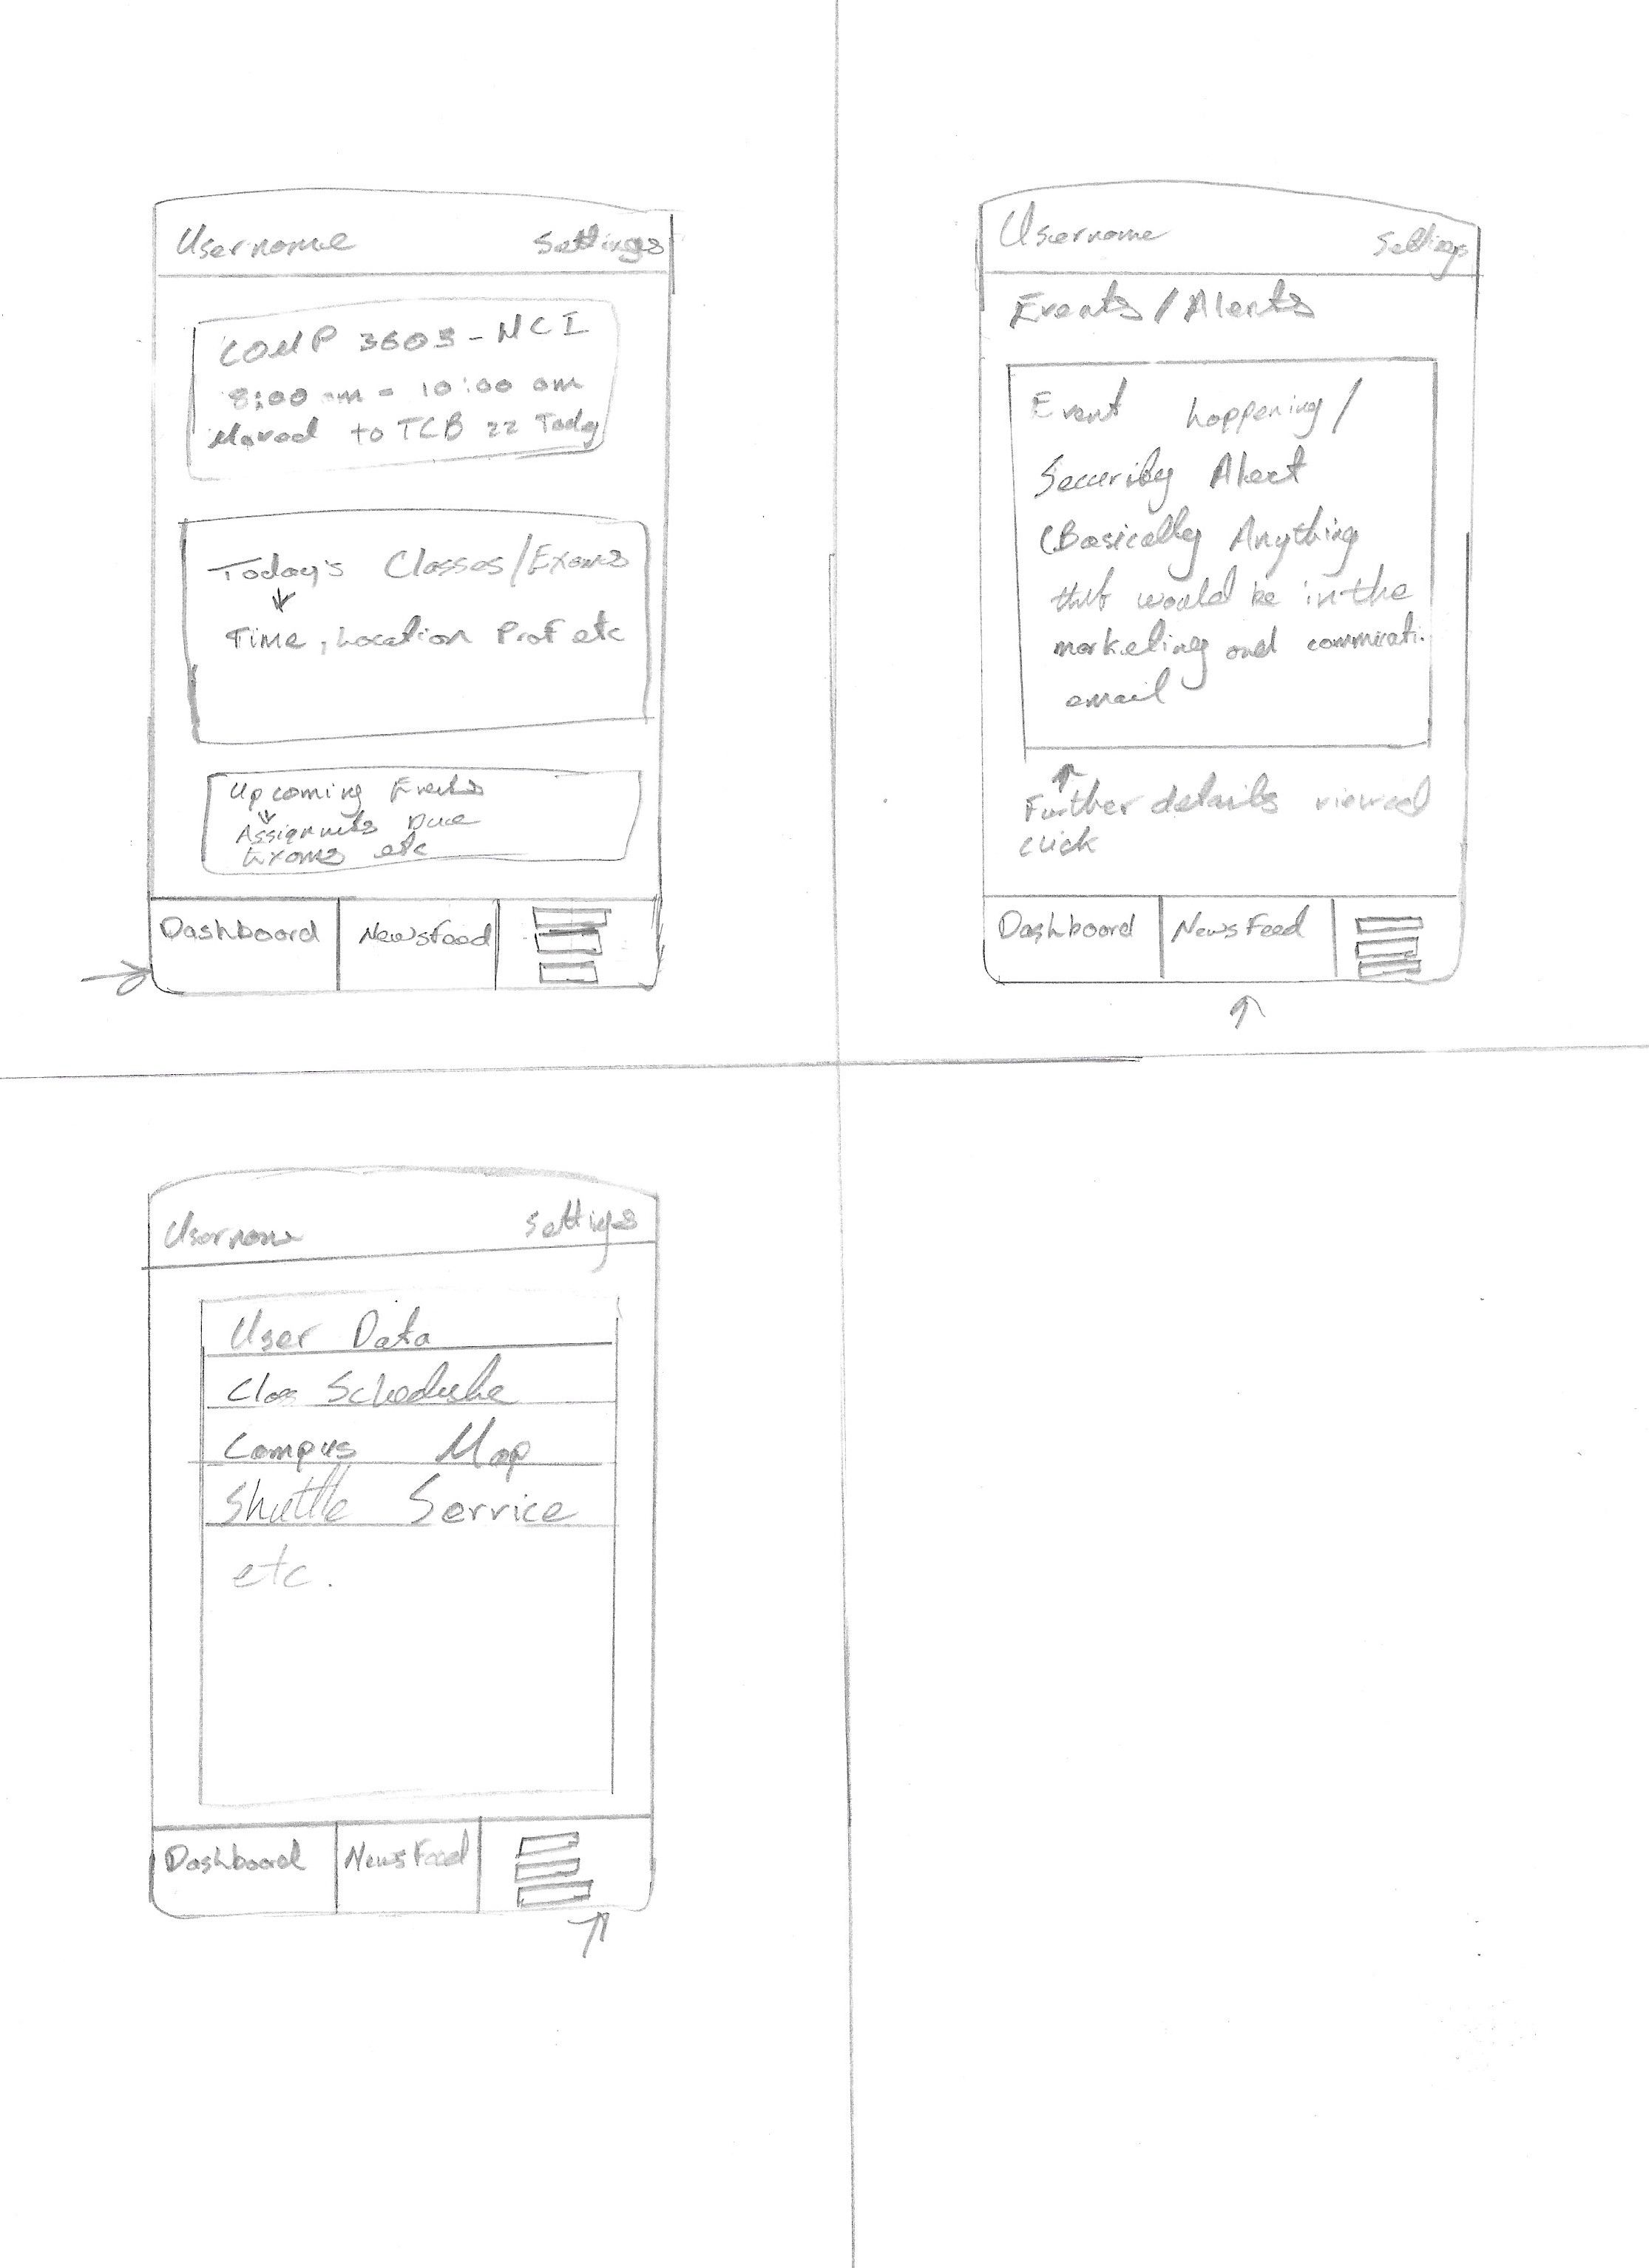 Username Settings
COMP 3603 - HCI
8:00 am - 10:00 am
Moved to TCB 22 Today
Today's Classes/Exams
Time, Location Prof etc
Upcoming Events
Assignments Due
Exams etc
Dashboard NewsFeed
Username Settings
Events / Alerts
Event happening /
Security Alert
(Basically Anything
that would be in the
marketing and communicati.
email
Further details viewed
click
Dashboard NewsFeed
Username Settings
User Data
Class Schedule
Campus Map
Shuttle Service
etc.
Dashboard NewsFeed